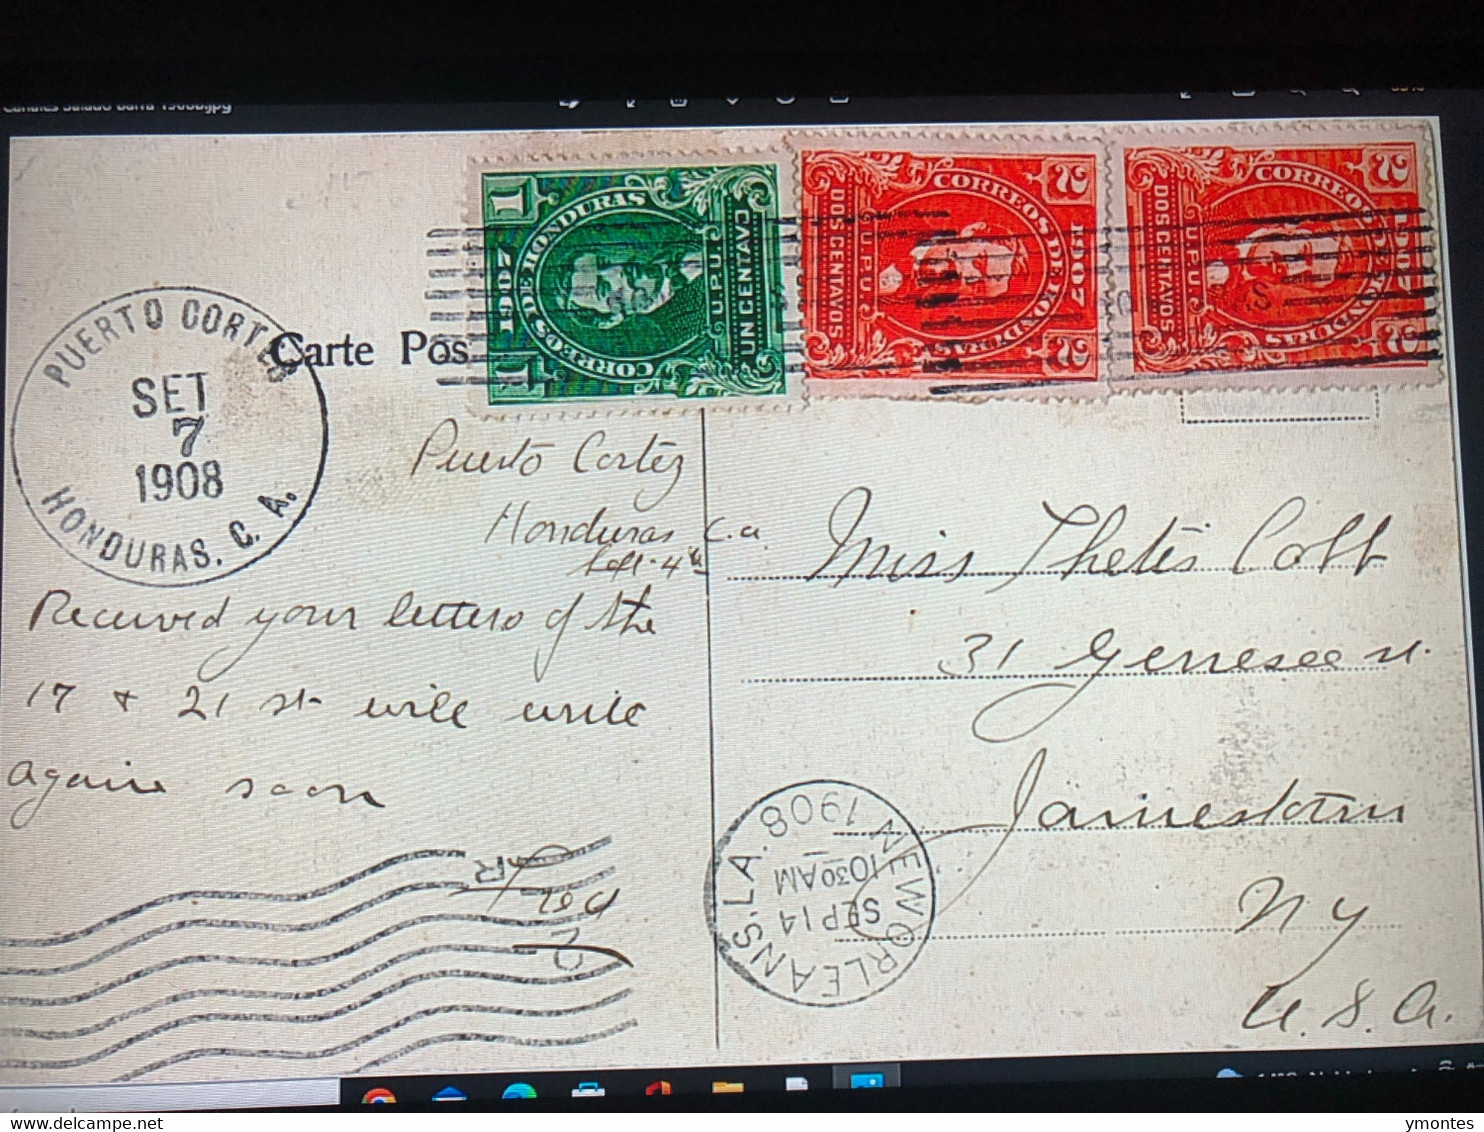 PUERTO CORTES
SET
7
1908
HONDURAS. C. A.
Carte Pos
1 1907 1
CORREOS DE HONDURAS
U.P.U.
UN CENTAVO
2 1907 2
CORREOS DE HONDURAS
U.P.U.
DOS CENTAVOS
2 1907 2
CORREOS DE HONDURAS
U.P.U.
DOS CENTAVOS
Puerto Cortez
Honduras C.a.
Sept. 4th
Received your letters of the
17 & 21 st will write
again soon
Fred
Miss Thetis Cobb
31 Genesee st.
Jamestown
NY
U.S.A.
NEW ORLEANS. LA.
SEP 14
10 30 AM
1908
R
2
delcampe.net
ymontes